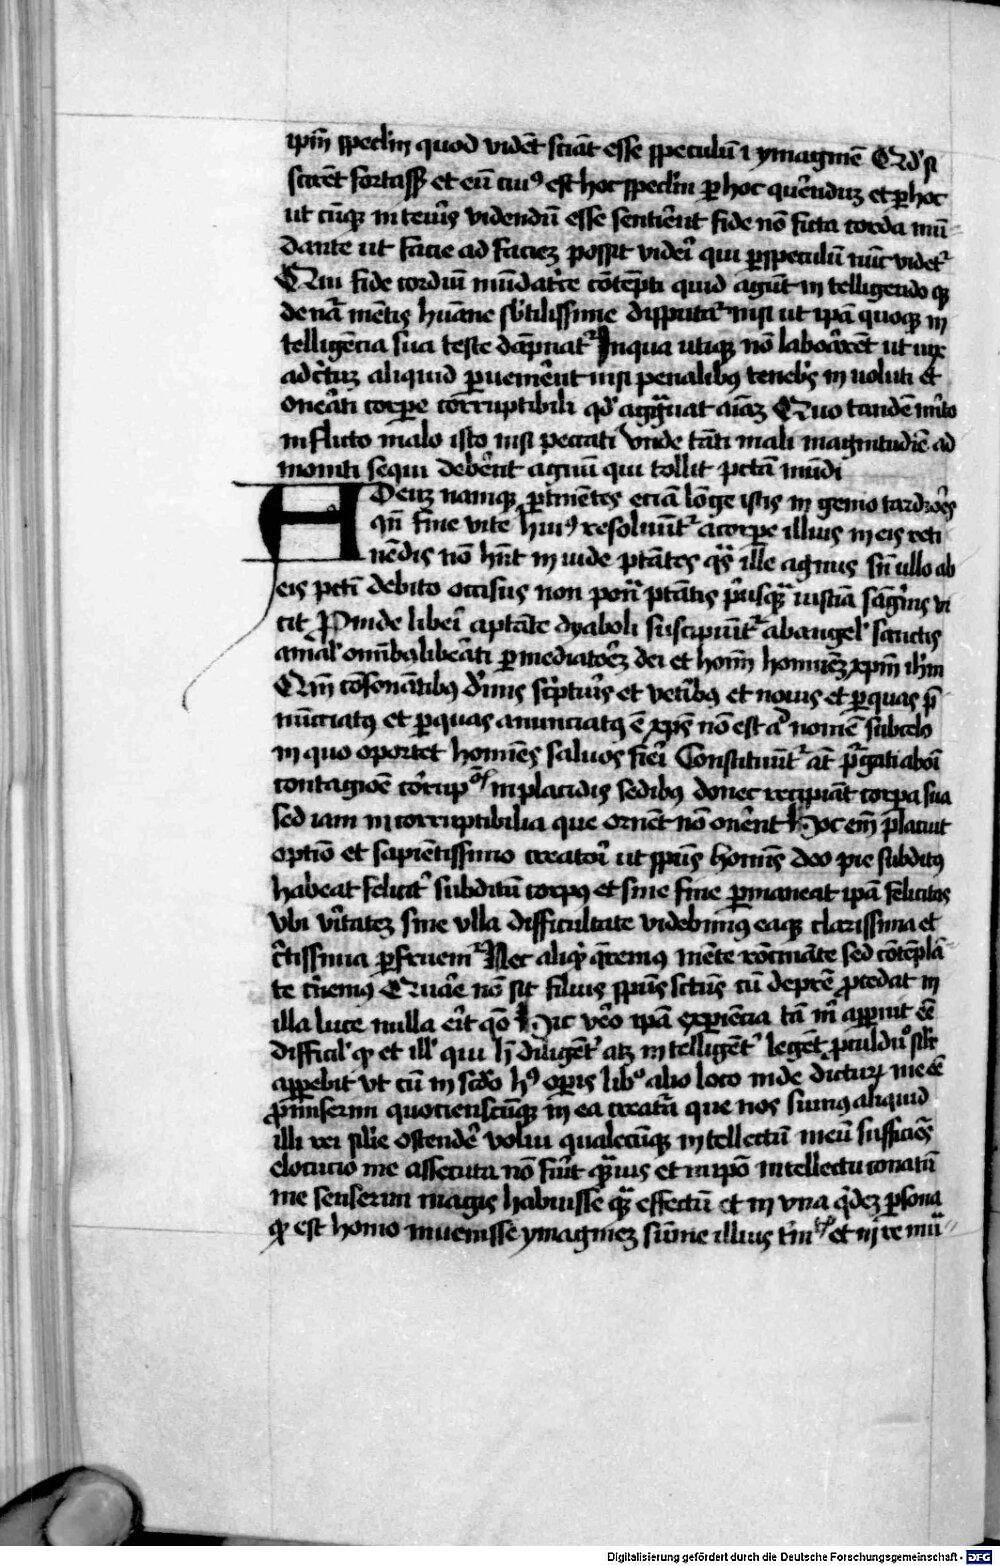 ip̄m spectm quod vidēt sciāt esse speculū ⁊ ymaginē Qd' si
scirēt fortass̄ et eū cui⁹ est hoc speclm p̱ hoc quērenduȝ et p̱ hoc
ut cūqȝ interīs videndū esse sentirēt fide nō ficta corda mū
dante ut facie ad facieȝ possit viderī qui p̱ speculū nūc videt᷑
Qui fide cordiū mūdatrice cōtēpti quid agūt in telligendo qȝ
de nā mētis hūane sb'tilissime disputāt᷑ nisi ut ip̄a quoqȝ in
telligēcia sua teste dāpnāt᷑ In qua utiqȝ nō laborārēt ut uix
ad c̄tuȝ aliquid p̱uenirēt nisi penalibȝ tenebīs in uoluti et
onerāti corpe corruptibili qd' aggrauat aīaȝ Quo tandē mīto
in flicto malo isto nisi peccati vnde tāti mali magnitudīe ad
moniti sequi debērēt agnū qui tollit pctā mūdi
Ad euȝ namqȝ p̱tinētes eciā lōge istis in genio tardiōes
qn̄ fine vite hui⁹ resoluūt᷑ a corpe illius in eis reti
nēdis nō hn̄t in uide ptātes q̄s ille agnus sn̄ ullo ab
eis pcti debito occisus non potn̄ ptātis p̄usq̄ iustiā sāgīnis vi
cit Proinde liberī a ptāte dyaboli suscipiūt᷑ ab angel' sanctis
a mal' om̄ibȝ liberāti p̱ mediatorēȝ dei et hom̄ hominēȝ xp̄m ih̄m
Qm̄ cōsonātibȝ d'inis sc̄pturīs et vetibȝ et nouis et p̱ quas p̄
nūcciatȝ et p̱ quas anunciatȝ ē xp̄s nō est a' nomē sub celo
in quo oportet homīes saluos fierī Constituūt᷑ āt p̄gati ab oī
contagiōe corrup^oīs in placidis sedibȝ donec recipiāt corpa sua
sed iam incorruptibilia que ornēt nō onērent Hoc em̄ placuit
optīo et sapiētissimo creatorī ut sp̄us homīs deo pie subditȝ
habeat felicit᷑ subditū corpȝ et sine fine p̱maneat ip̄a felicitas
Vbi vītateȝ sine vlla difficultate videbimȝ eaqȝ clarissima et
c̄tissima p̱fruem᷑ Nec aliq̄ q̄remȝ mēte rōcināte sed cōtēplā
te c̄nemȝ Quāe nō sit filius sp̄us sctūs cū de patrē p̱cedat in
illa luce nulla erit q̄o Hic vēo ip̄a experiēcia tā m̄ apparuit eē
difficil' qȝ et ill' qui h̄ diligent᷑ atqȝ intelligent᷑ legēt p̱culdu^o sil'r
apparebit vt cū in sc̄do h⁹ opis lib^o alio loco inde dicturȝ me eē
p̱miserim quociēscūqȝ in ea creatā que nos sumȝ aliquid
illi rei sīle ostendē volui qualēcūqȝ intellectū meū sufficiēs
elocucio me assecuta nō fūit qȝuis et in ipō intellectu conatū
me senserim magis habuisse q̄ effectū et in vna q̄deȝ p̱sona
qȝ est homo inuenisse ymagineȝ sūme illius t'nit^is et in re mū